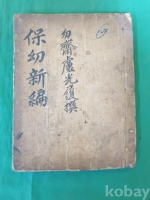 保幼新編
幼齋盧光履撰
kobay